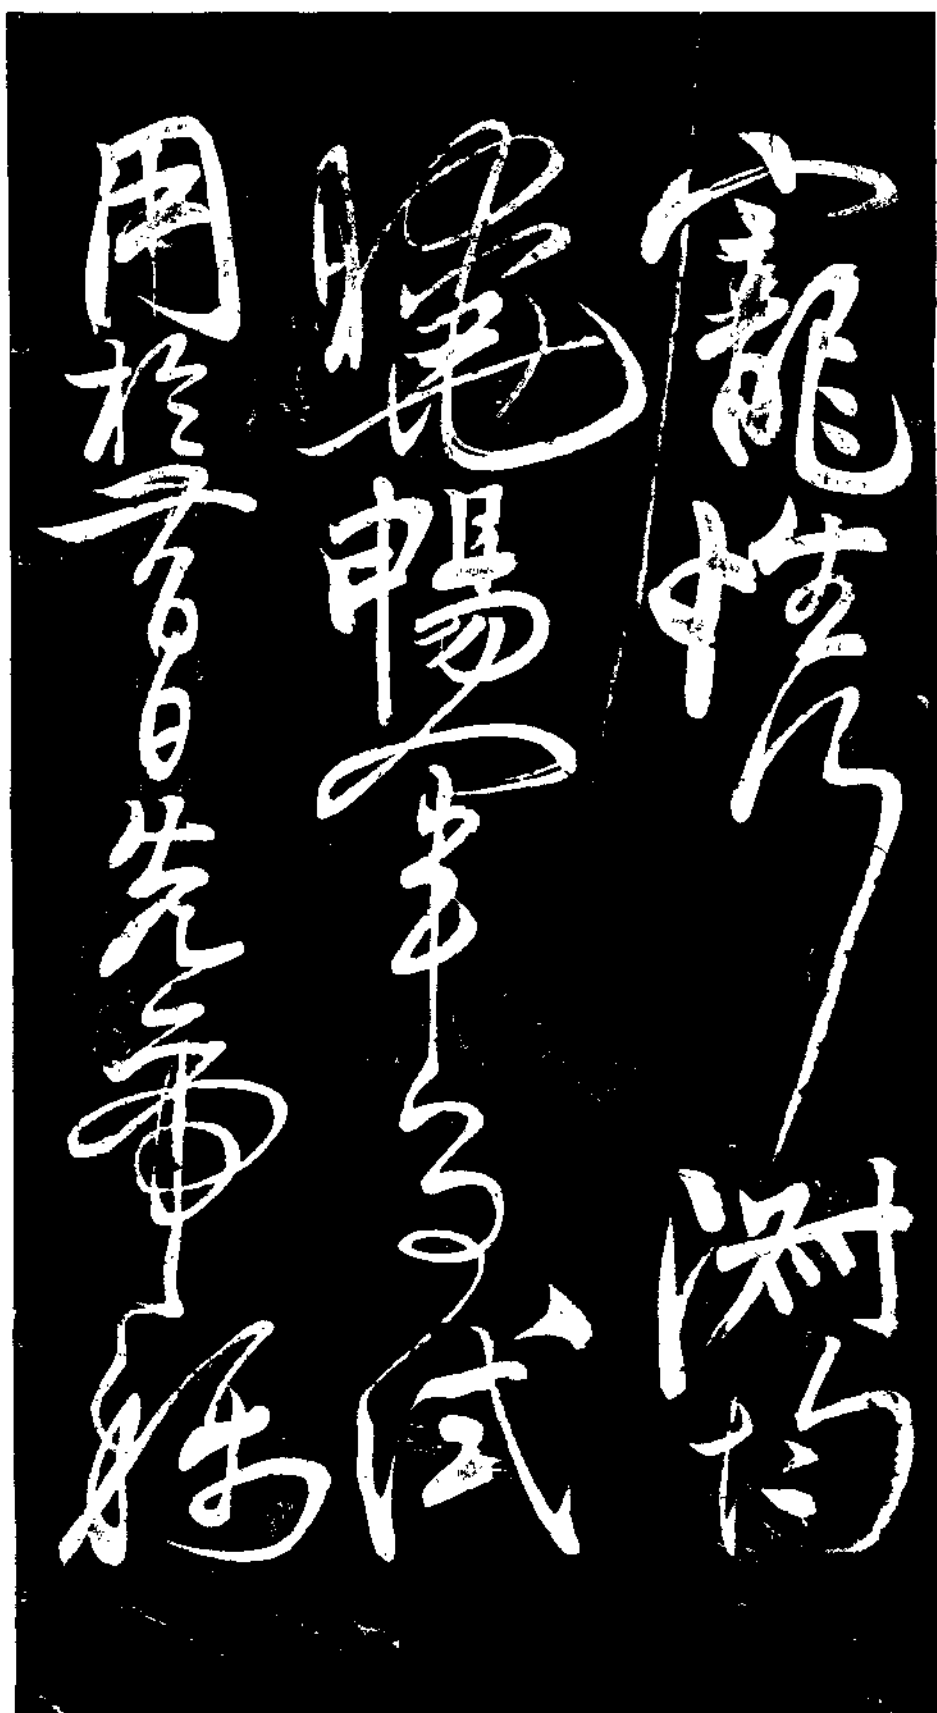 寵性行淑均
曉暢軍事試
用於昔日先帝稱